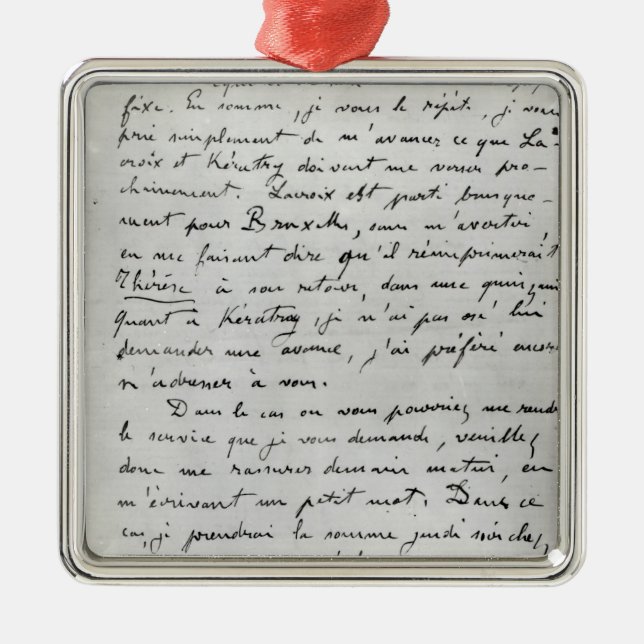 fixe. En somme, je vous le répète, je vous
prie simplement de m'avancer ce que La-
croix et Kératry doivent me verser pro-
chainement. Lacroix est parti brusque-
ment pour Bruxelles, sans m'avertir,
en me faisant dire qu'il réimprimerait
Thérèse à son retour, dans une quinzain
Quant à Kératry, je n'ai pas osé lui
demander une avance, j'ai préféré encore
m'adresser à vous.
Dans le cas où vous pourriez me rendr
le service que je vous demande, veuillez
donc me rassurer demain matin, en
m'écrivant un petit mot. Dans ce
cas, je prendrai la somme jeudi soir chez,